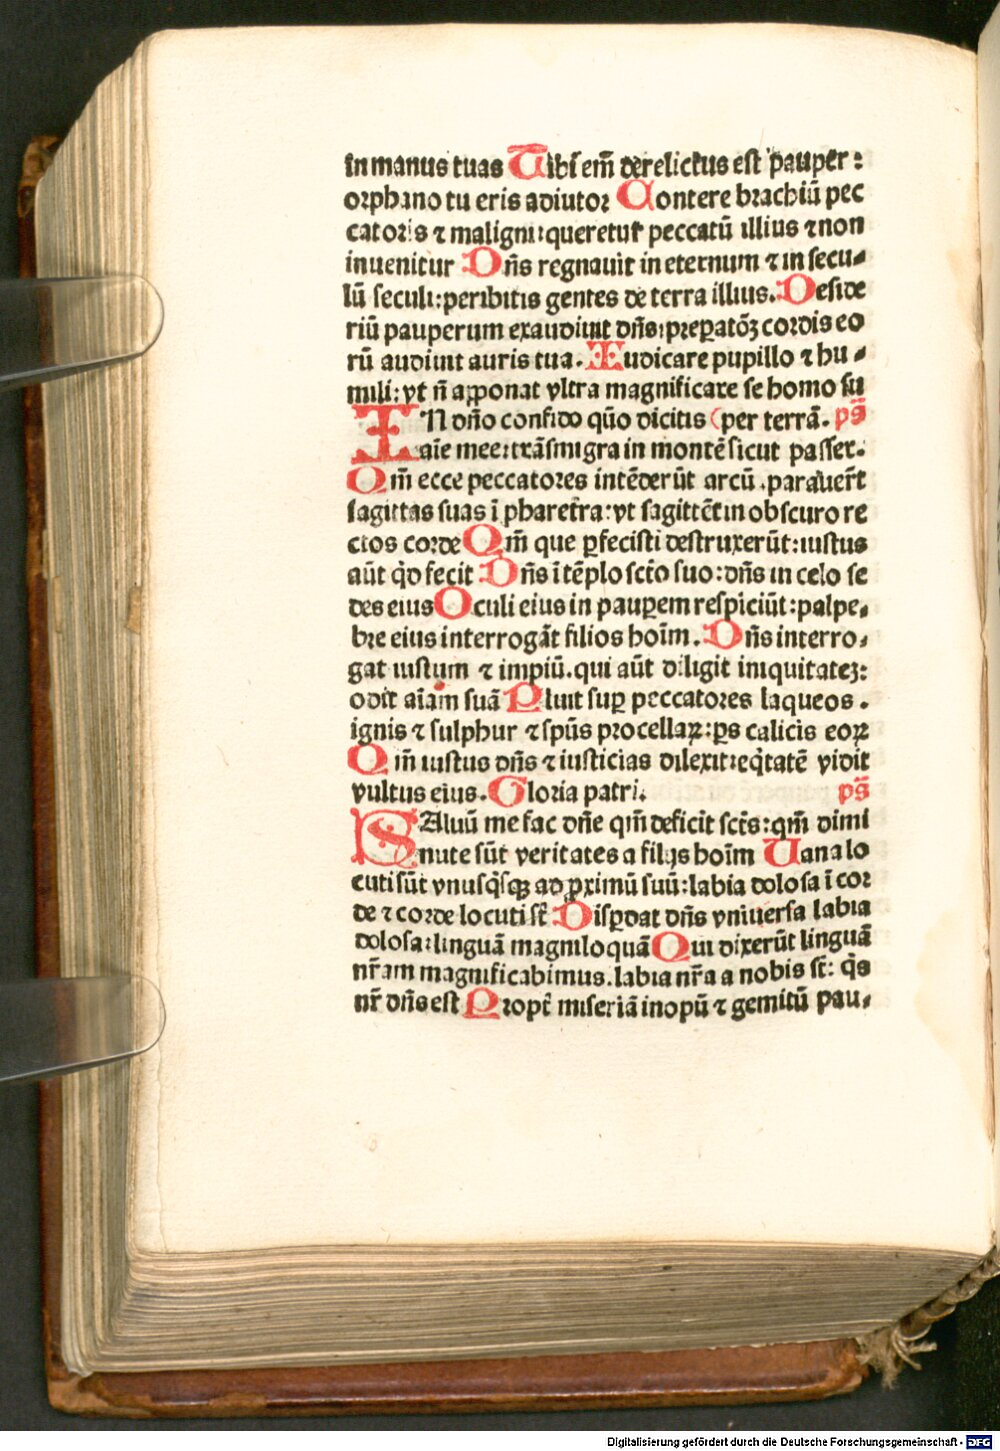 in manus tuas Tibi em̄ derelictus est pauper:
orphano tu eris adiutor Contere brachiū pec
catoris ⁊ maligni: queretur peccatū illius ⁊ non
inuenitur Dn̄s regnauit in eternum ⁊ in secu-
lū seculi: peribitis gentes de terra illius. Deside
riū pauperum exaudiuit dn̄s: prepatōꝫ cordis eo
rū audiuit auris tua. Iudicare pupillo ⁊ hu-
mili: vt n̄ apponat vltra magnificare se homo su
IN dn̄o confido quō dicitis (per terrā. ps̄
aīe mee: trāsmigra in montē sicut passer.
Qm̄ ecce peccatores intēderūt arcū. parauer̄t
sagittas suas ī pharetra: vt sagittēt in obscuro re
ctos corde Qm̄ que ꝑfecisti destruxerūt: iustus
aūt qͥd fecit Dn̄s ī tēplo sctō suo: dn̄s in celo se
des eius Oculi eius in pauꝑem respiciūt: palpe-
bre eius interrogāt filios hoīm. Dn̄s interro-
gat iustum ⁊ impiū. qui aūt diligit iniquitateꝫ:
odit aīam suā Pluit suꝑ peccatores laqueos.
ignis ⁊ sulphur ⁊ spūs procellaꝝ: ꝑs calicis eoꝝ
Qm̄ iustus dn̄s ⁊ iusticias dilexit: eqͥtatē vidit
vultus eius. Gloria patri. ps̄
SAluū me fac dn̄e qm̄ deficit sct̄s: qm̄ dimi
nute sūt veritates a filijs hoīm Uana lo
cuti sūt vnusqͥsqꝫ ad ꝓximū suū: labia dolosa ī cor
de ⁊ corde locuti st̄ Disꝑdat dn̄s vniuersa labia
dolosa: linguā magniloquā Qui dixerūt linguā
nr̄am magnificabimus. labia nr̄a a nobis st̄: qͥs
nr̄ dn̄s est Propt̄ miseriā inopū ⁊ gemitū pau-
Digitalisierung gefördert durch die Deutsche Forschungsgemeinschaft - DFG